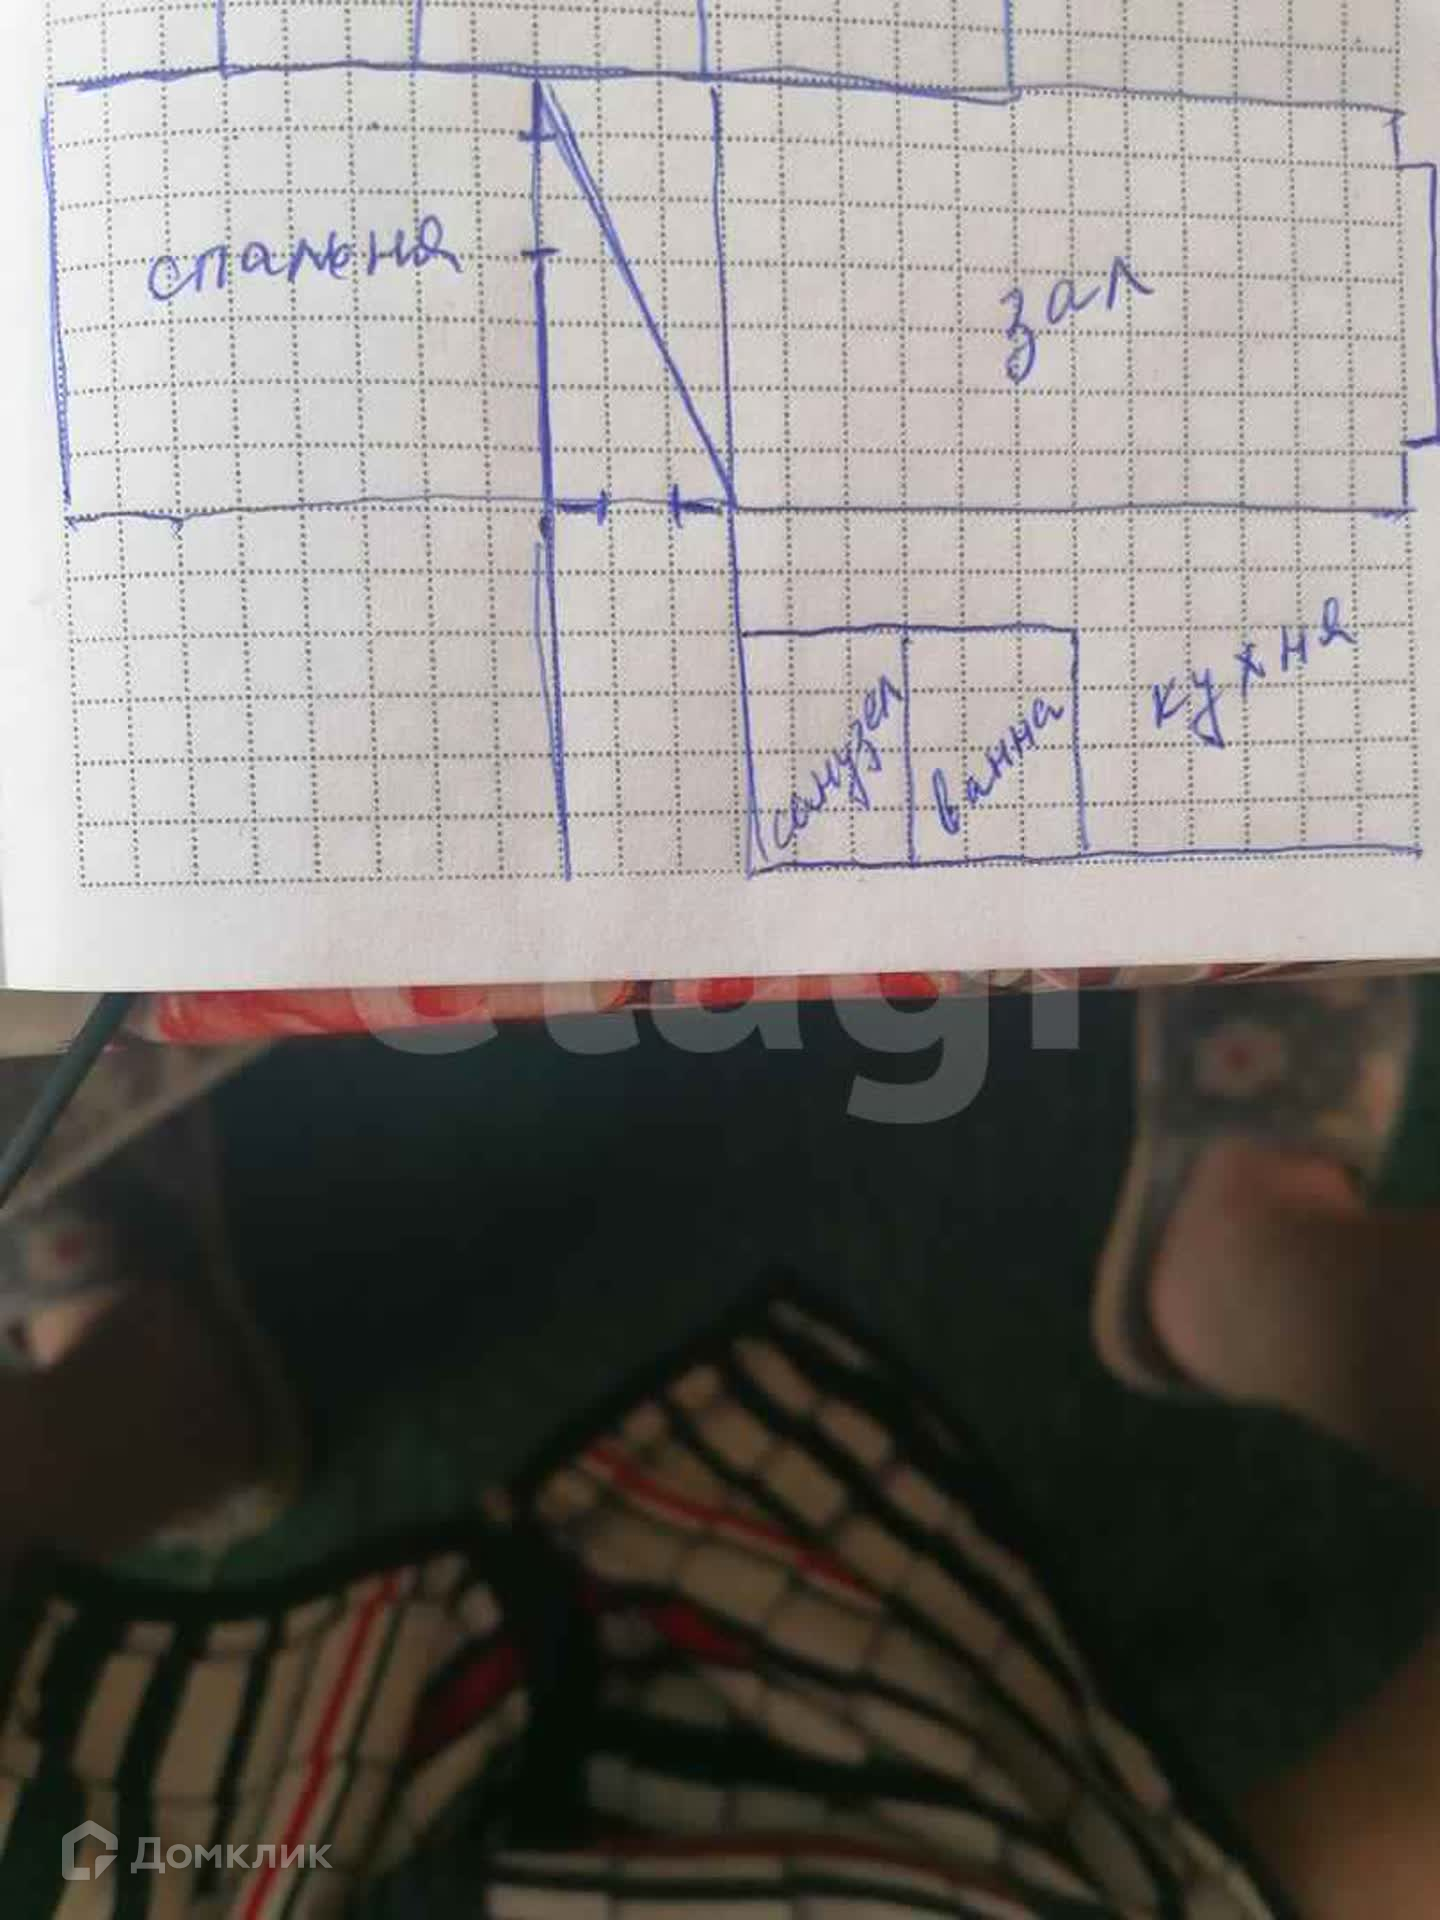 спальня
зал
санузел
ванна
кухня
etagi
Домклик